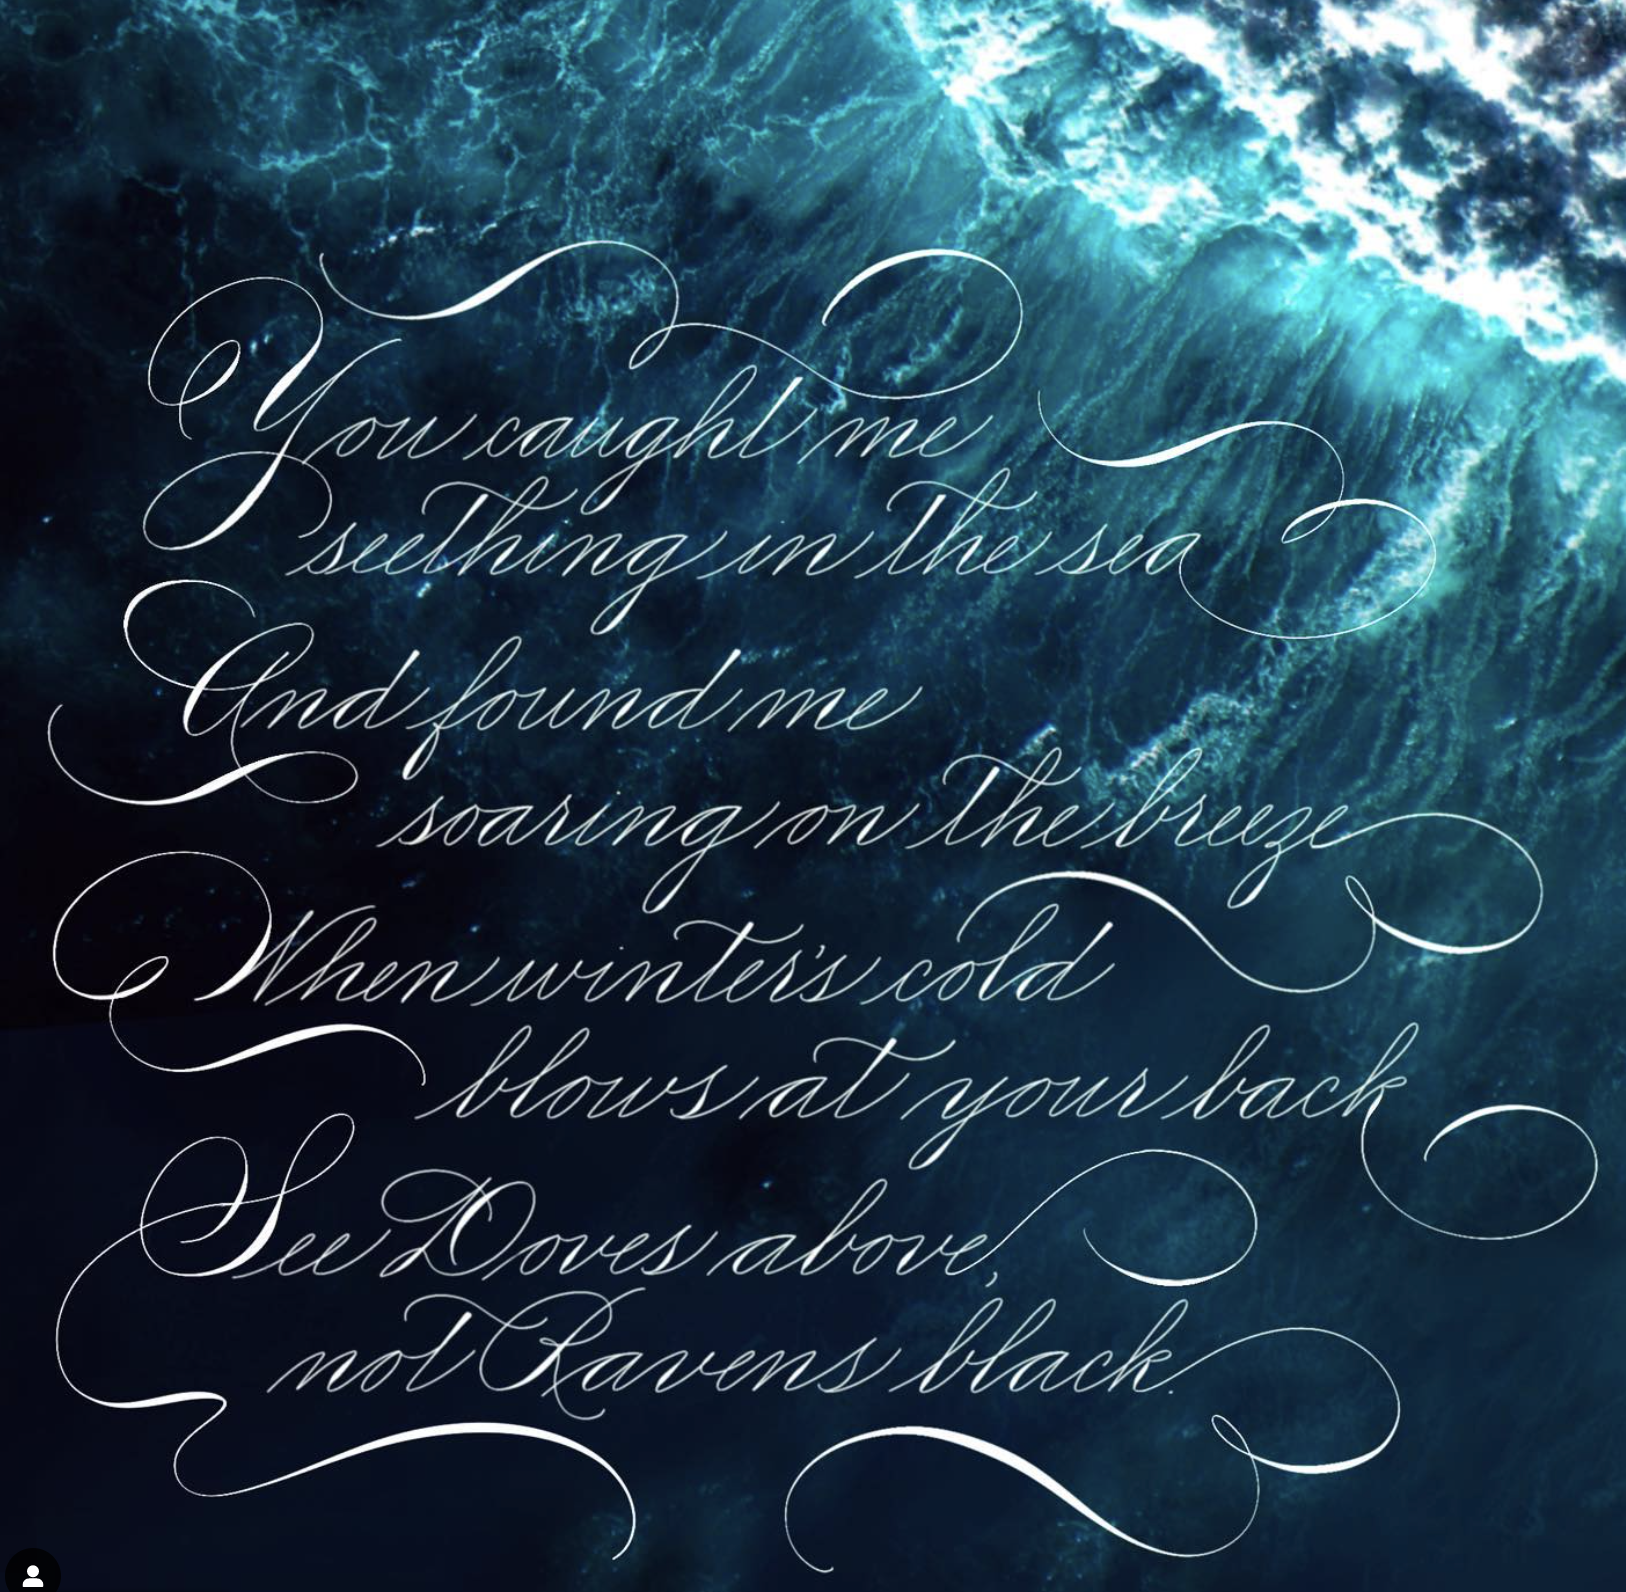 You caught me
seething in the sea
And found me
soaring on the breeze
When winter's cold
blows at your back
See Doves above,
not Ravens black.